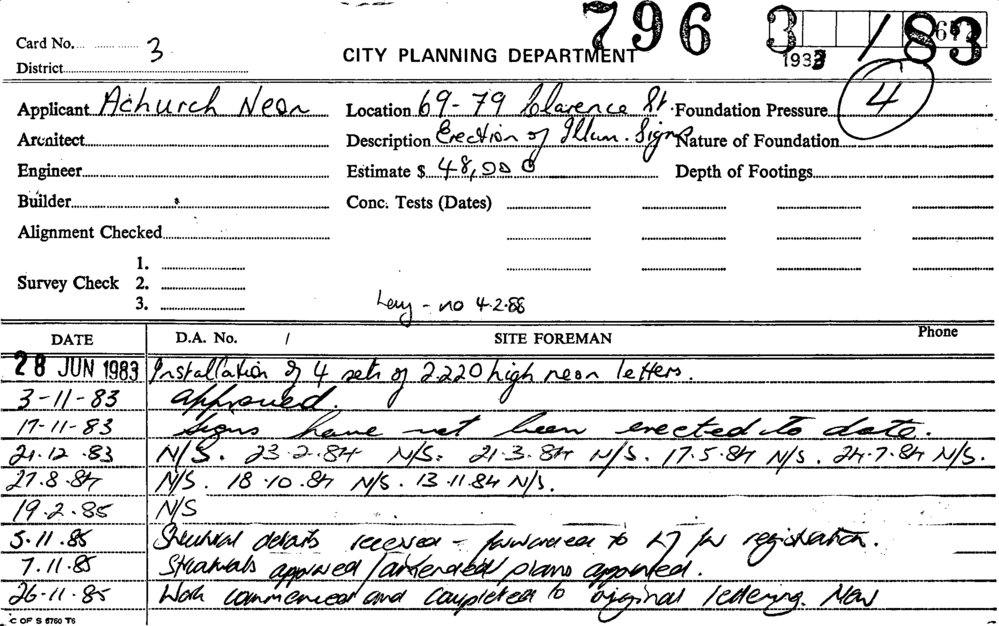 796 3/83
Card No. 3
CITY PLANNING DEPARTMENT
1983
District
4
Applicant Achurch Neon Location 69-79 Clarence St. Foundation Pressure
Architect Description Erection of Illum. Signs Nature of Foundation
Engineer Estimate $ 48,000 Depth of Footings
Builder Conc. Tests (Dates)
Alignment Checked
1.
Survey Check 2.
3. Levy - no 4-2-88
DATE D.A. No. / SITE FOREMAN Phone
28 JUN 1983 Installation of 4 sets of 2220 high neon letters.
3-11-83 approved.
17-11-83 Signs have not been erected to date.
21.12.83 N/S. 23.2.84 N/S. 21.3.84 N/S. 17.5.84 N/S. 24.7.84 N/S.
27.8.84 N/S. 18.10.84 N/S. 13.11.84 N/S.
19.2.85 N/S
5.11.85 Structural details received - forwarded to for registration.
7.11.85 Structurals approved / amended plans
26-11-85 Work commenced and completed to original lettering. New
C OF S 6760 T6